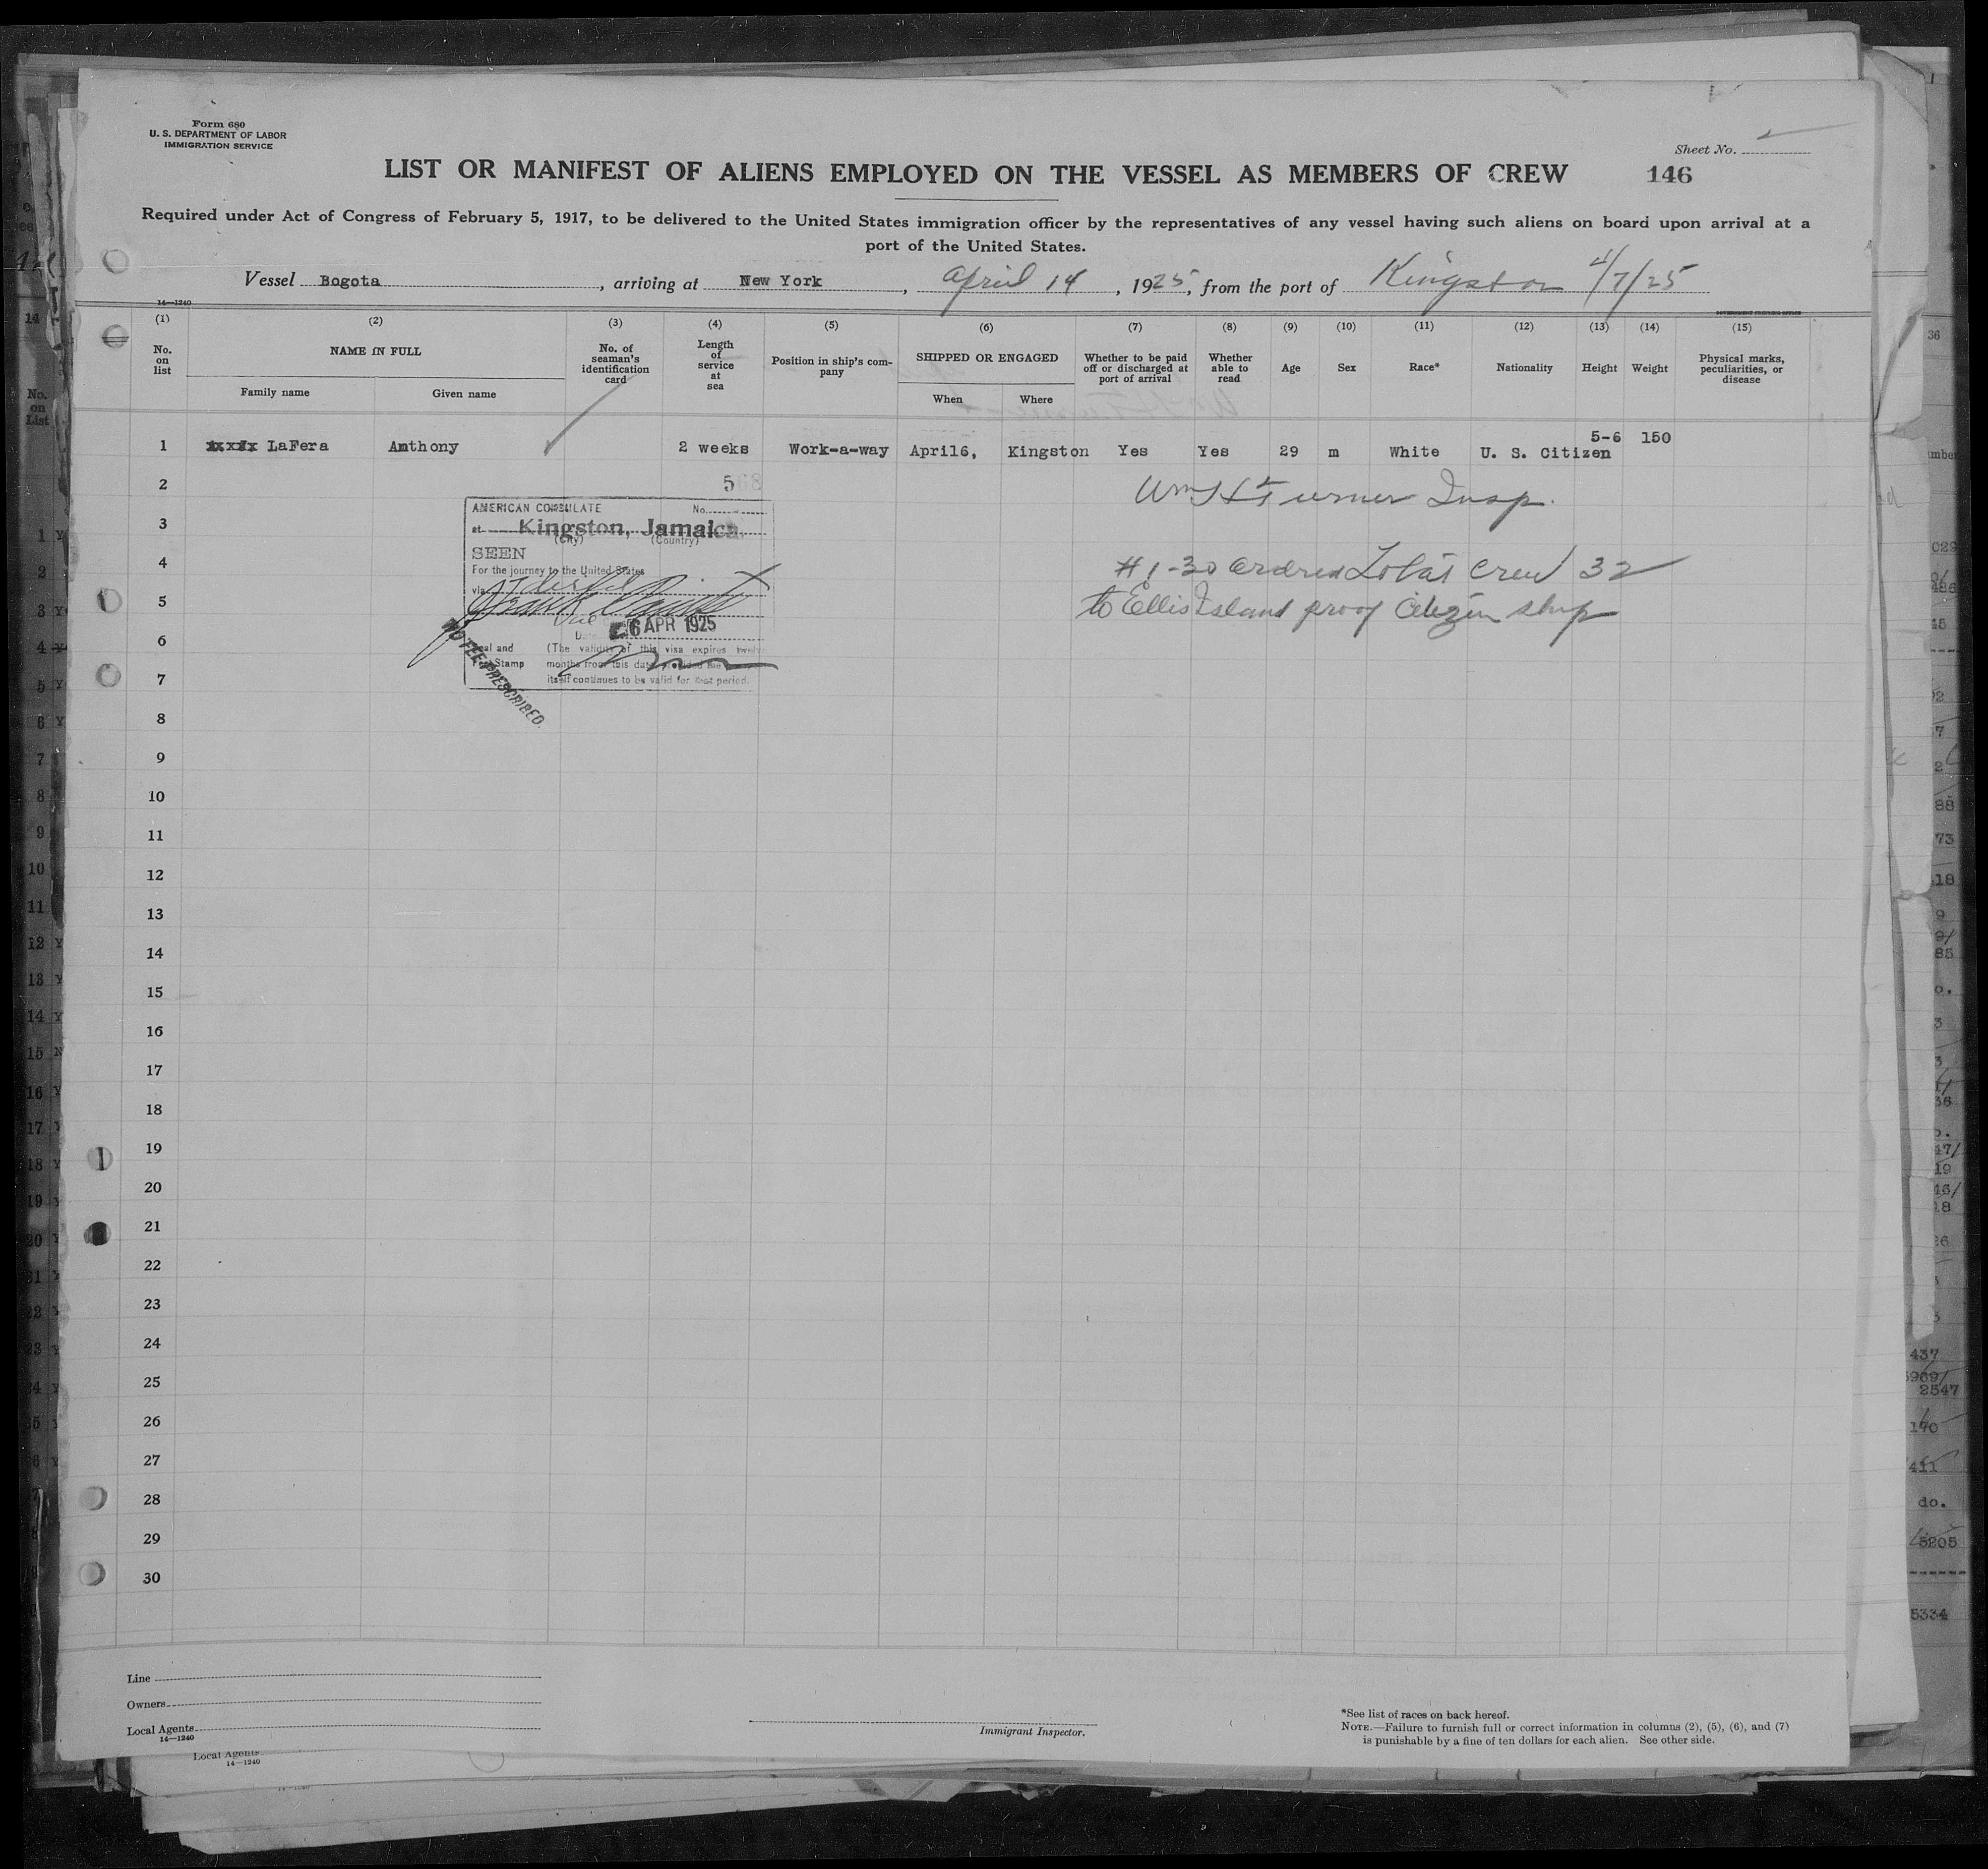 Form 680
U. S. DEPARTMENT OF LABOR
IMMIGRATION SERVICE
Sheet No.
LIST OR MANIFEST OF ALIENS EMPLOYED ON THE VESSEL AS MEMBERS OF CREW 146
Required under Act of Congress of February 5, 1917, to be delivered to the United States immigration officer by the representatives of any vessel having such aliens on board upon arrival at a
port of the United States.
Vessel Bogota, arriving at New York, April 14, 1925, from the port of Kingston 4/7/25
14—1240
GOVERNMENT PRINTING OFFICE
(1) (2) (3) (4) (5) (6) (7) (8) (9) (10) (11) (12) (13) (14) (15)
No. on list
NAME IN FULL
Family name
Given name
No. of seaman's identification card
Length of service at sea
Position in ship's company
SHIPPED OR ENGAGED
When
Where
Whether to be paid off or discharged at port of arrival
Whether able to read
Age
Sex
Race*
Nationality
Height
Weight
Physical marks, peculiarities, or disease
1 LaFera Anthony 2 weeks Work-a-way April6, Kingston Yes Yes 29 m White U. S. Citizen 5-6 150
2 5
Wm H Turner Insp.
3
4
5
6
7
AMERICAN CONSULATE No.
at Kingston, Jamaica.
(City) (Country)
SEEN
For the journey to the United States
via
Date 6 APR 1925
Seal and (The validity of this visa expires twelve
Fee Stamp months from this date provided the
itself continues to be valid for that period.
NO FEE PRESCRIBED.
#1-30 ordered Total Crew 32
to Ellis Island proof Citizenship
8
9
10
11
12
13
14
15
16
17
18
19
20
21
22
23
24
25
26
27
28
29
30
Line
Owners
Local Agents
14—1240
Immigrant Inspector.
*See list of races on back hereof.
NOTE.—Failure to furnish full or correct information in columns (2), (5), (6), and (7)
is punishable by a fine of ten dollars for each alien. See other side.
Local Agents
14—1240